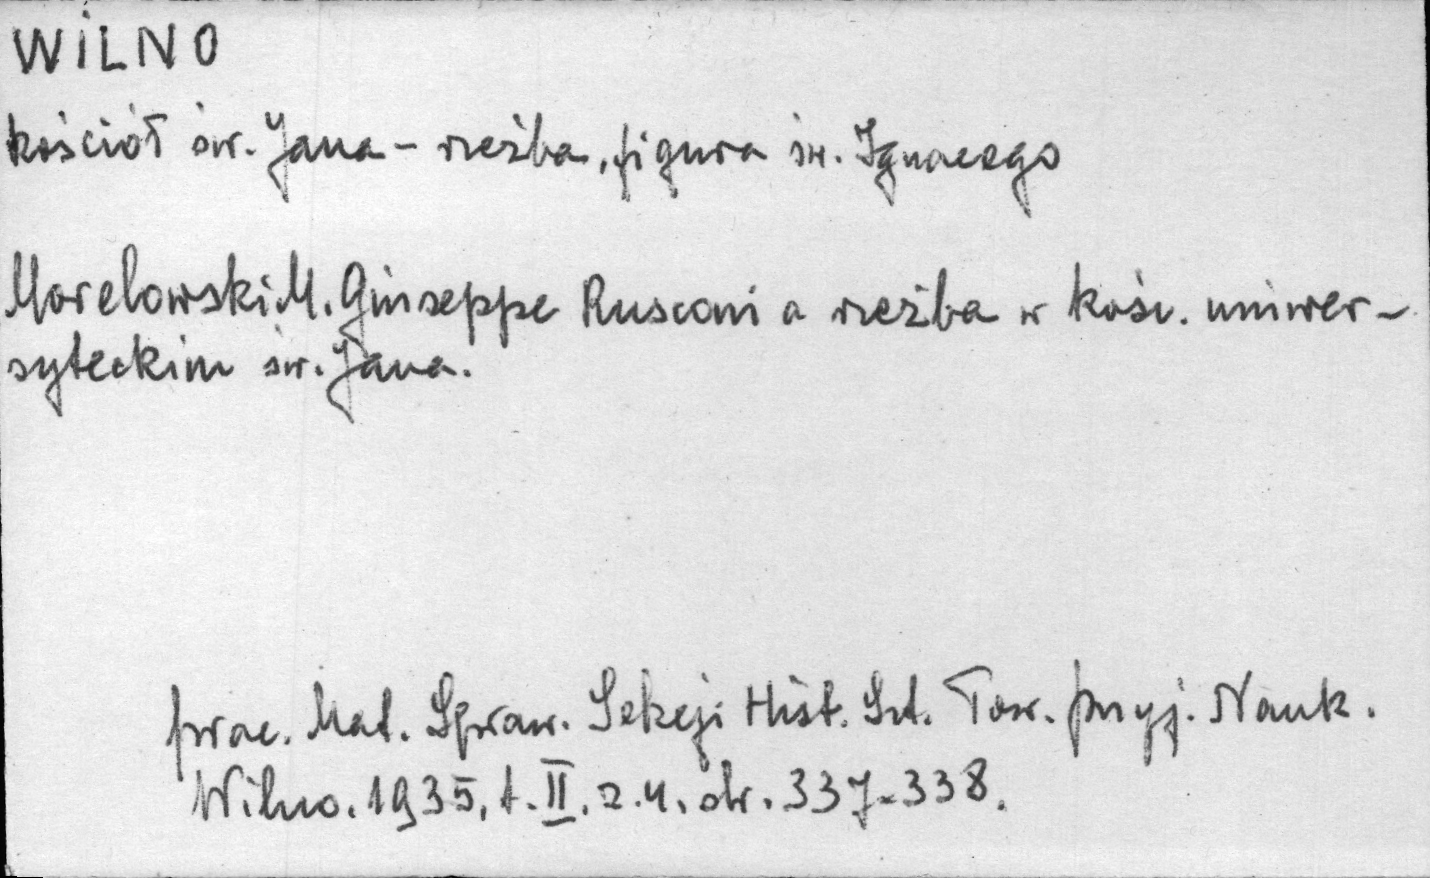 WILNO
kościół św. Jana – rzeźba, figura św. Ignacego
Morelowski M. Giuseppe Rusconi a rzeźba w kośc. uniwer-
syteckim św. Jana.
prac. Mat. Spraw. Sekcji Hist. Szt. Tow. przyj. Nauk.
Wilno. 1935, t. II. z. 4. str. 337-338.